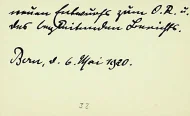 neuen Entwurfs zum O.R. u.
des begleitenden Berichts.
Bern, d. 6. Mai 1920.